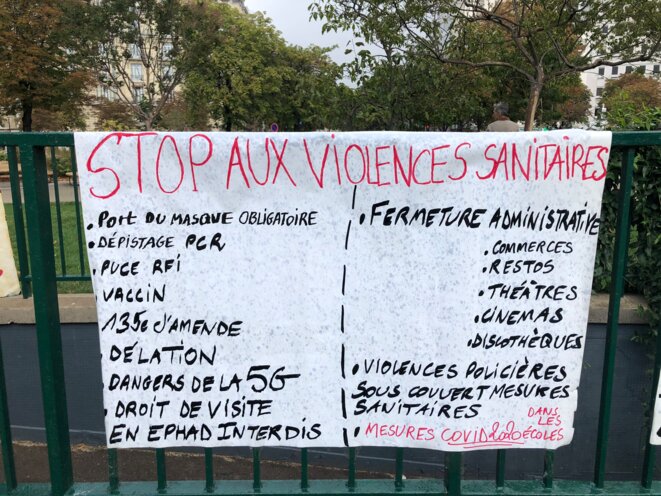 STOP AUX VIOLENCES SANITAIRES
. PORT DU MASQUE OBLIGATOIRE
. DÉPISTAGE PCR
. PUCE RFI
. VACCIN
. 135€ d'AMENDE
. DÉLATION
. DANGERS DE LA 5G
. DROIT DE VISITE
EN EPHAD INTERDIS
. FERMETURE ADMINISTRATIVE
. COMMERCES
. RESTOS
. THÉÂTRES
. CINEMAS
. DISCOTHÈQUES
. VIOLENCES POLICIÈRES
SOUS COUVERT MESURES
SANITAIRES
. MESURES COVID 2020 DANS LES ÉCOLES